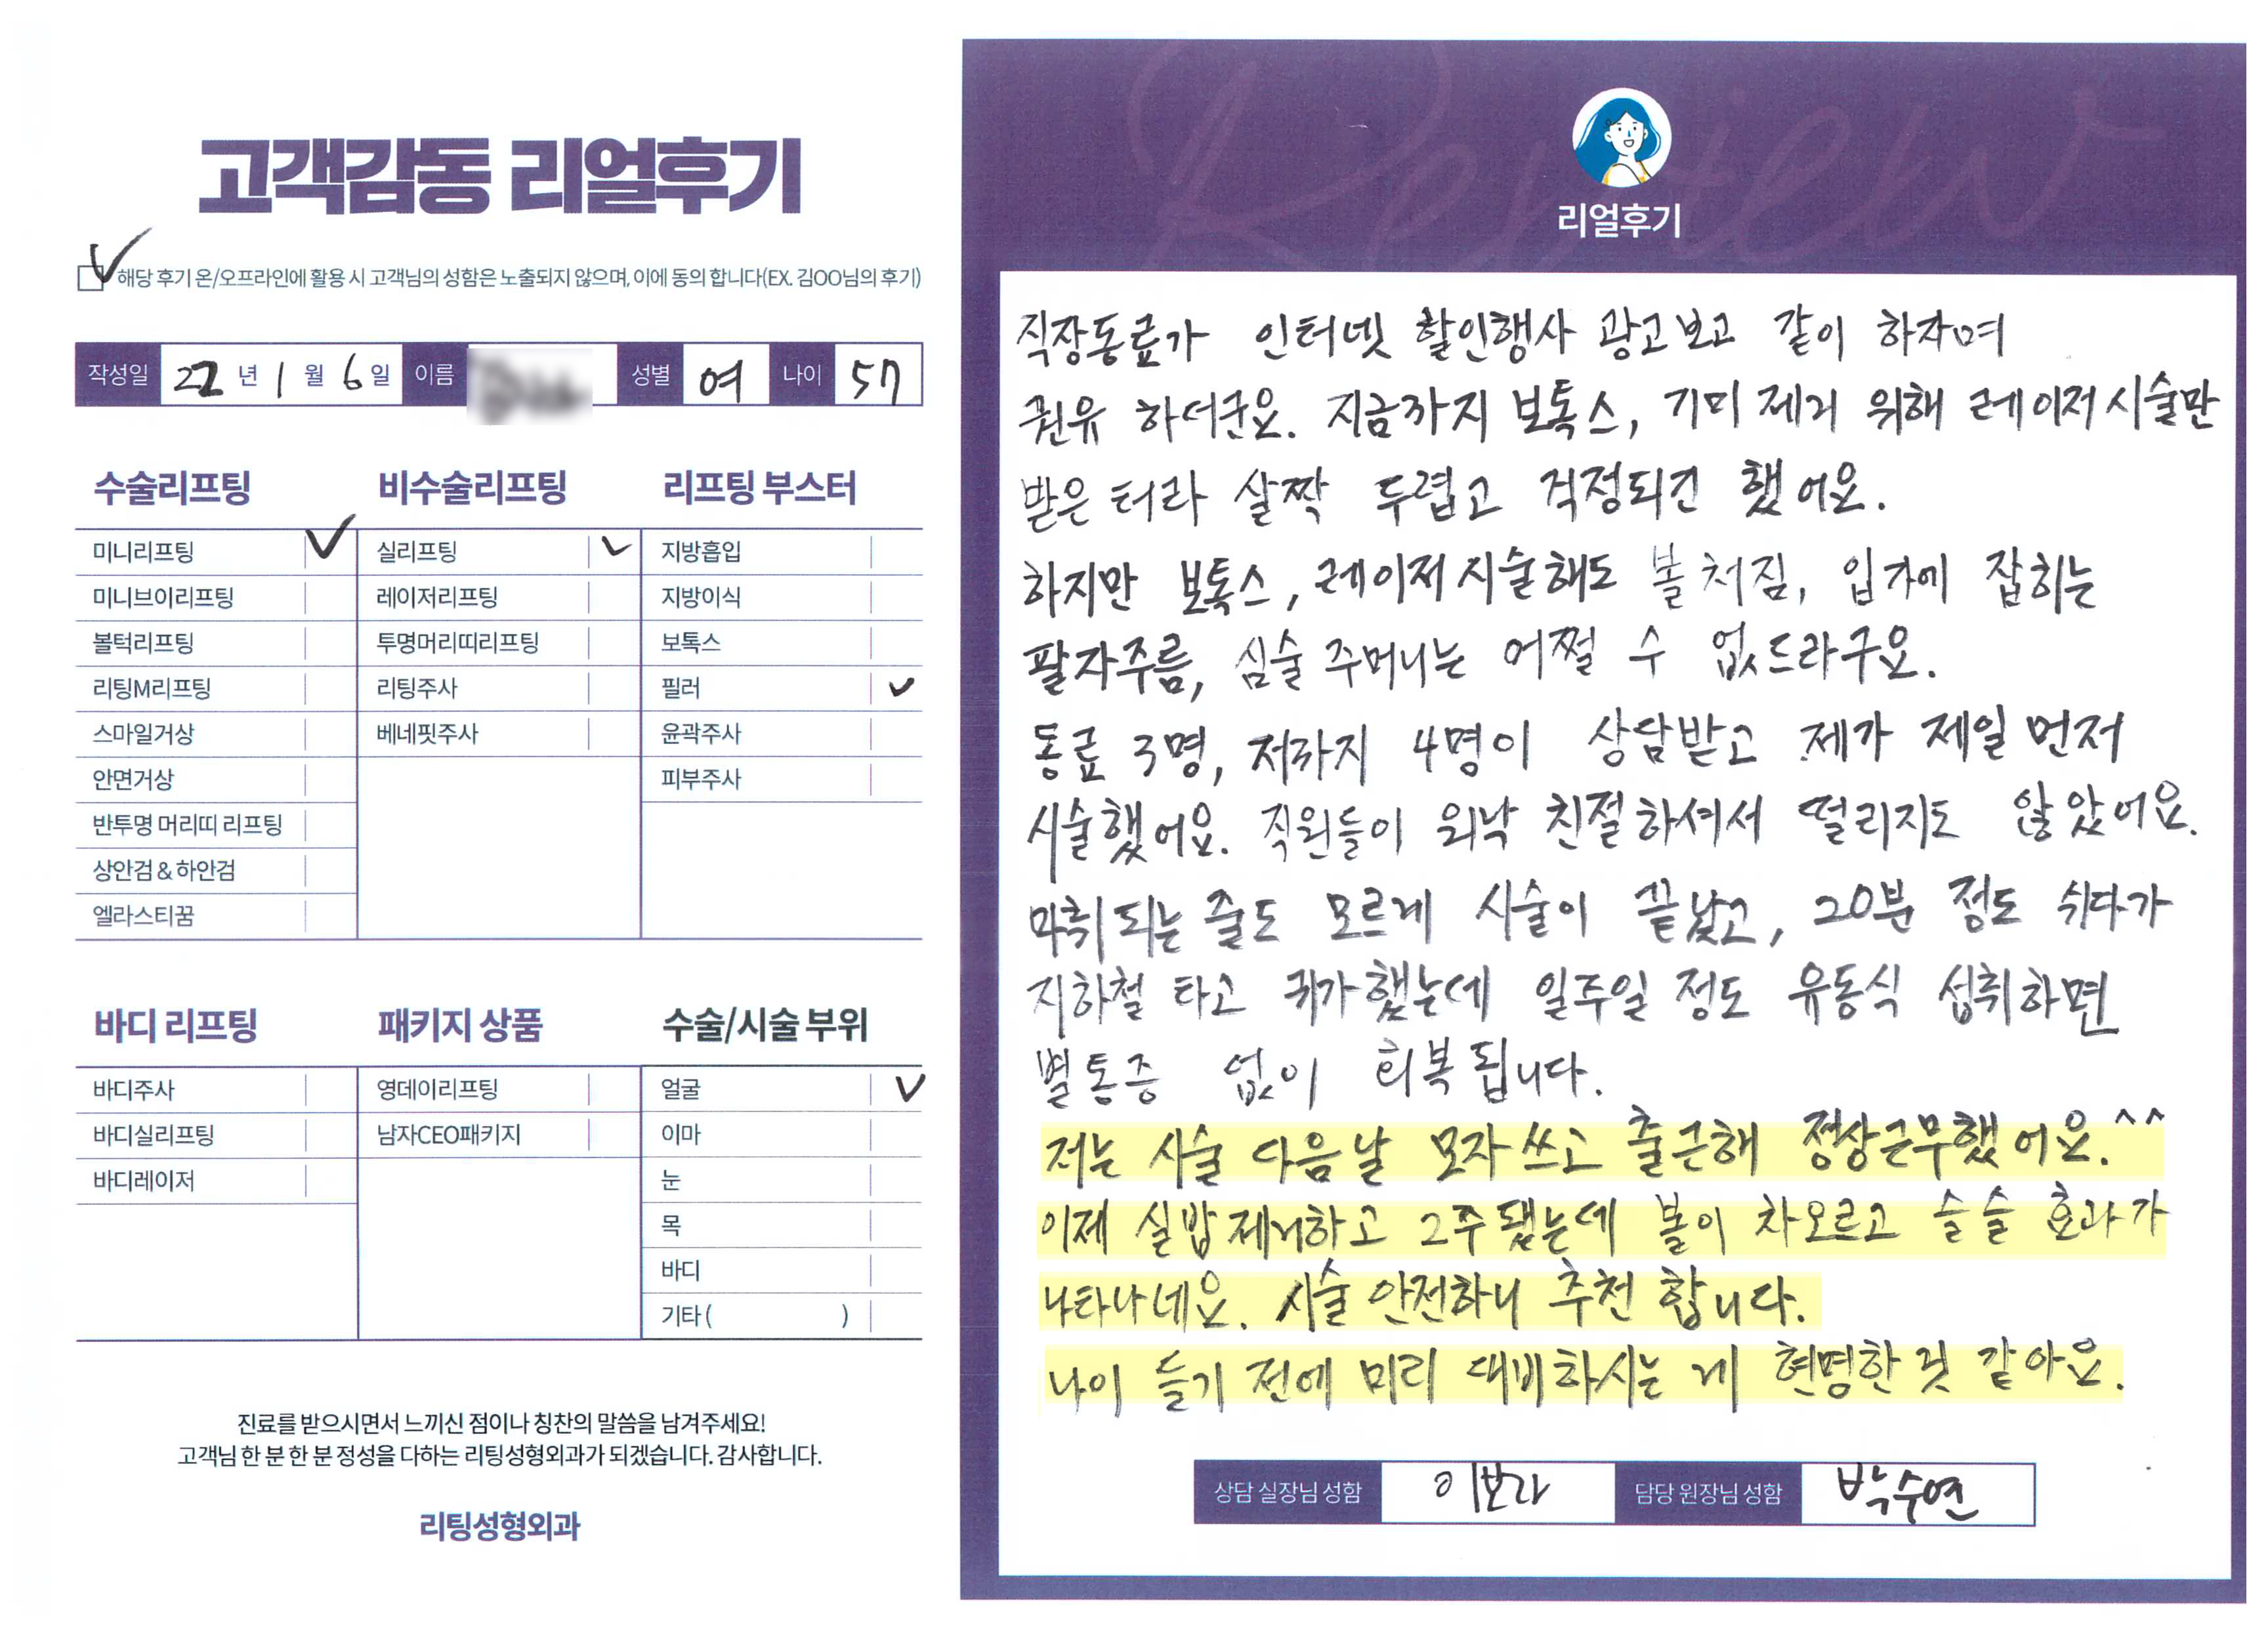 고객감동 리얼후기
해당 후기 온/오프라인에 활용 시 고객님의 성함은 노출되지 않으며, 이에 동의 합니다(EX. 김OO님의 후기)
작성일 22 년 1 월 6 일 이름 성별 여 나이 57
수술리프팅 비수술리프팅 리프팅 부스터
미니리프팅 실리프팅 지방흡입
미니브이리프팅 레이저리프팅 지방이식
볼턱리프팅 투명머리띠리프팅 보톡스
리팅M리프팅 리팅주사 필러
스마일거상 베네핏주사 윤곽주사
안면거상 피부주사
반투명 머리띠 리프팅
상안검 & 하안검
엘라스티꿈
바디 리프팅 패키지 상품 수술/시술 부위
바디주사 영데이리프팅 얼굴
바디실리프팅 남자CEO패키지 이마
바디레이저 눈
목
바디
기타 ( )
진료를 받으시면서 느끼신 점이나 칭찬의 말씀을 남겨주세요!
고객님 한 분 한 분 정성을 다하는 리팅성형외과가 되겠습니다. 감사합니다.
리팅성형외과
Review
리얼후기
직장동료가 인터넷 할인행사 광고보고 같이 하자며
권유 하더군요. 지금까지 보톡스, 기미 제거 위해 레이저 시술만
받은 터라 살짝 두렵고 걱정되긴 했어요.
하지만 보톡스, 레이저 시술해도 볼 처짐, 입가에 잡히는
팔자주름, 심술 주머니는 어쩔 수 없드라구요.
동료 3명, 저까지 4명이 상담받고 제가 제일 먼저
시술했어요. 직원들이 워낙 친절하셔서 떨리지도 않았어요.
마취 되는 줄도 모르게 시술이 끝났고, 20분 정도 쉬다가
지하철 타고 귀가했는데 일주일 정도 유동식 섭취하면
별 통증 없이 회복 됩니다.
저는 시술 다음날 모자 쓰고 출근해 정상근무했어요.^^
이제 실밥 제거하고 2주 됐는데 볼이 차오르고 슬슬 효과가
나타나네요. 시술 안전하니 추천 합니다.
나이 들기 전에 미리 대비하시는 게 현명한 것 같아요.
상담 실장님 성함 이보라 담당 원장님 성함 박수연